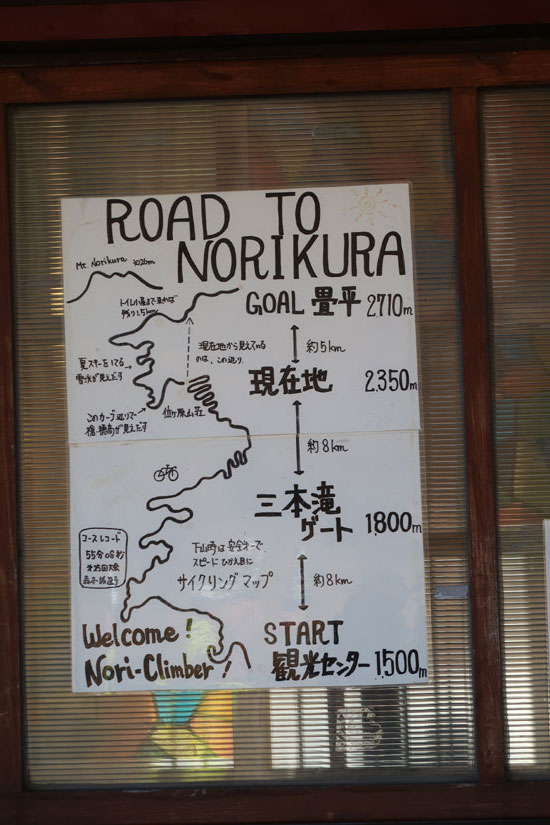 ROAD TO
NORIKURA
Mt. Norikura 3026m
GOAL 畳平 2710m
トイレ小屋まで来れば
残り1.5km!
約5km
現在地から見えているのは、この辺り
夏スキーをしてる
雪渓が見えだす
現在地 2.350m
このカーブ辺りで
槍・穂高が見えだす
位ヶ原山荘
約8km
三本滝
ゲート 1.800m
コースレコード
55分08秒
第25回大会
森本 誠選手
下山時は安全第一で
スピードひかえめに
サイクリングマップ
約8km
Welcome!
Nori-Climber!
START
観光センター 1.500m